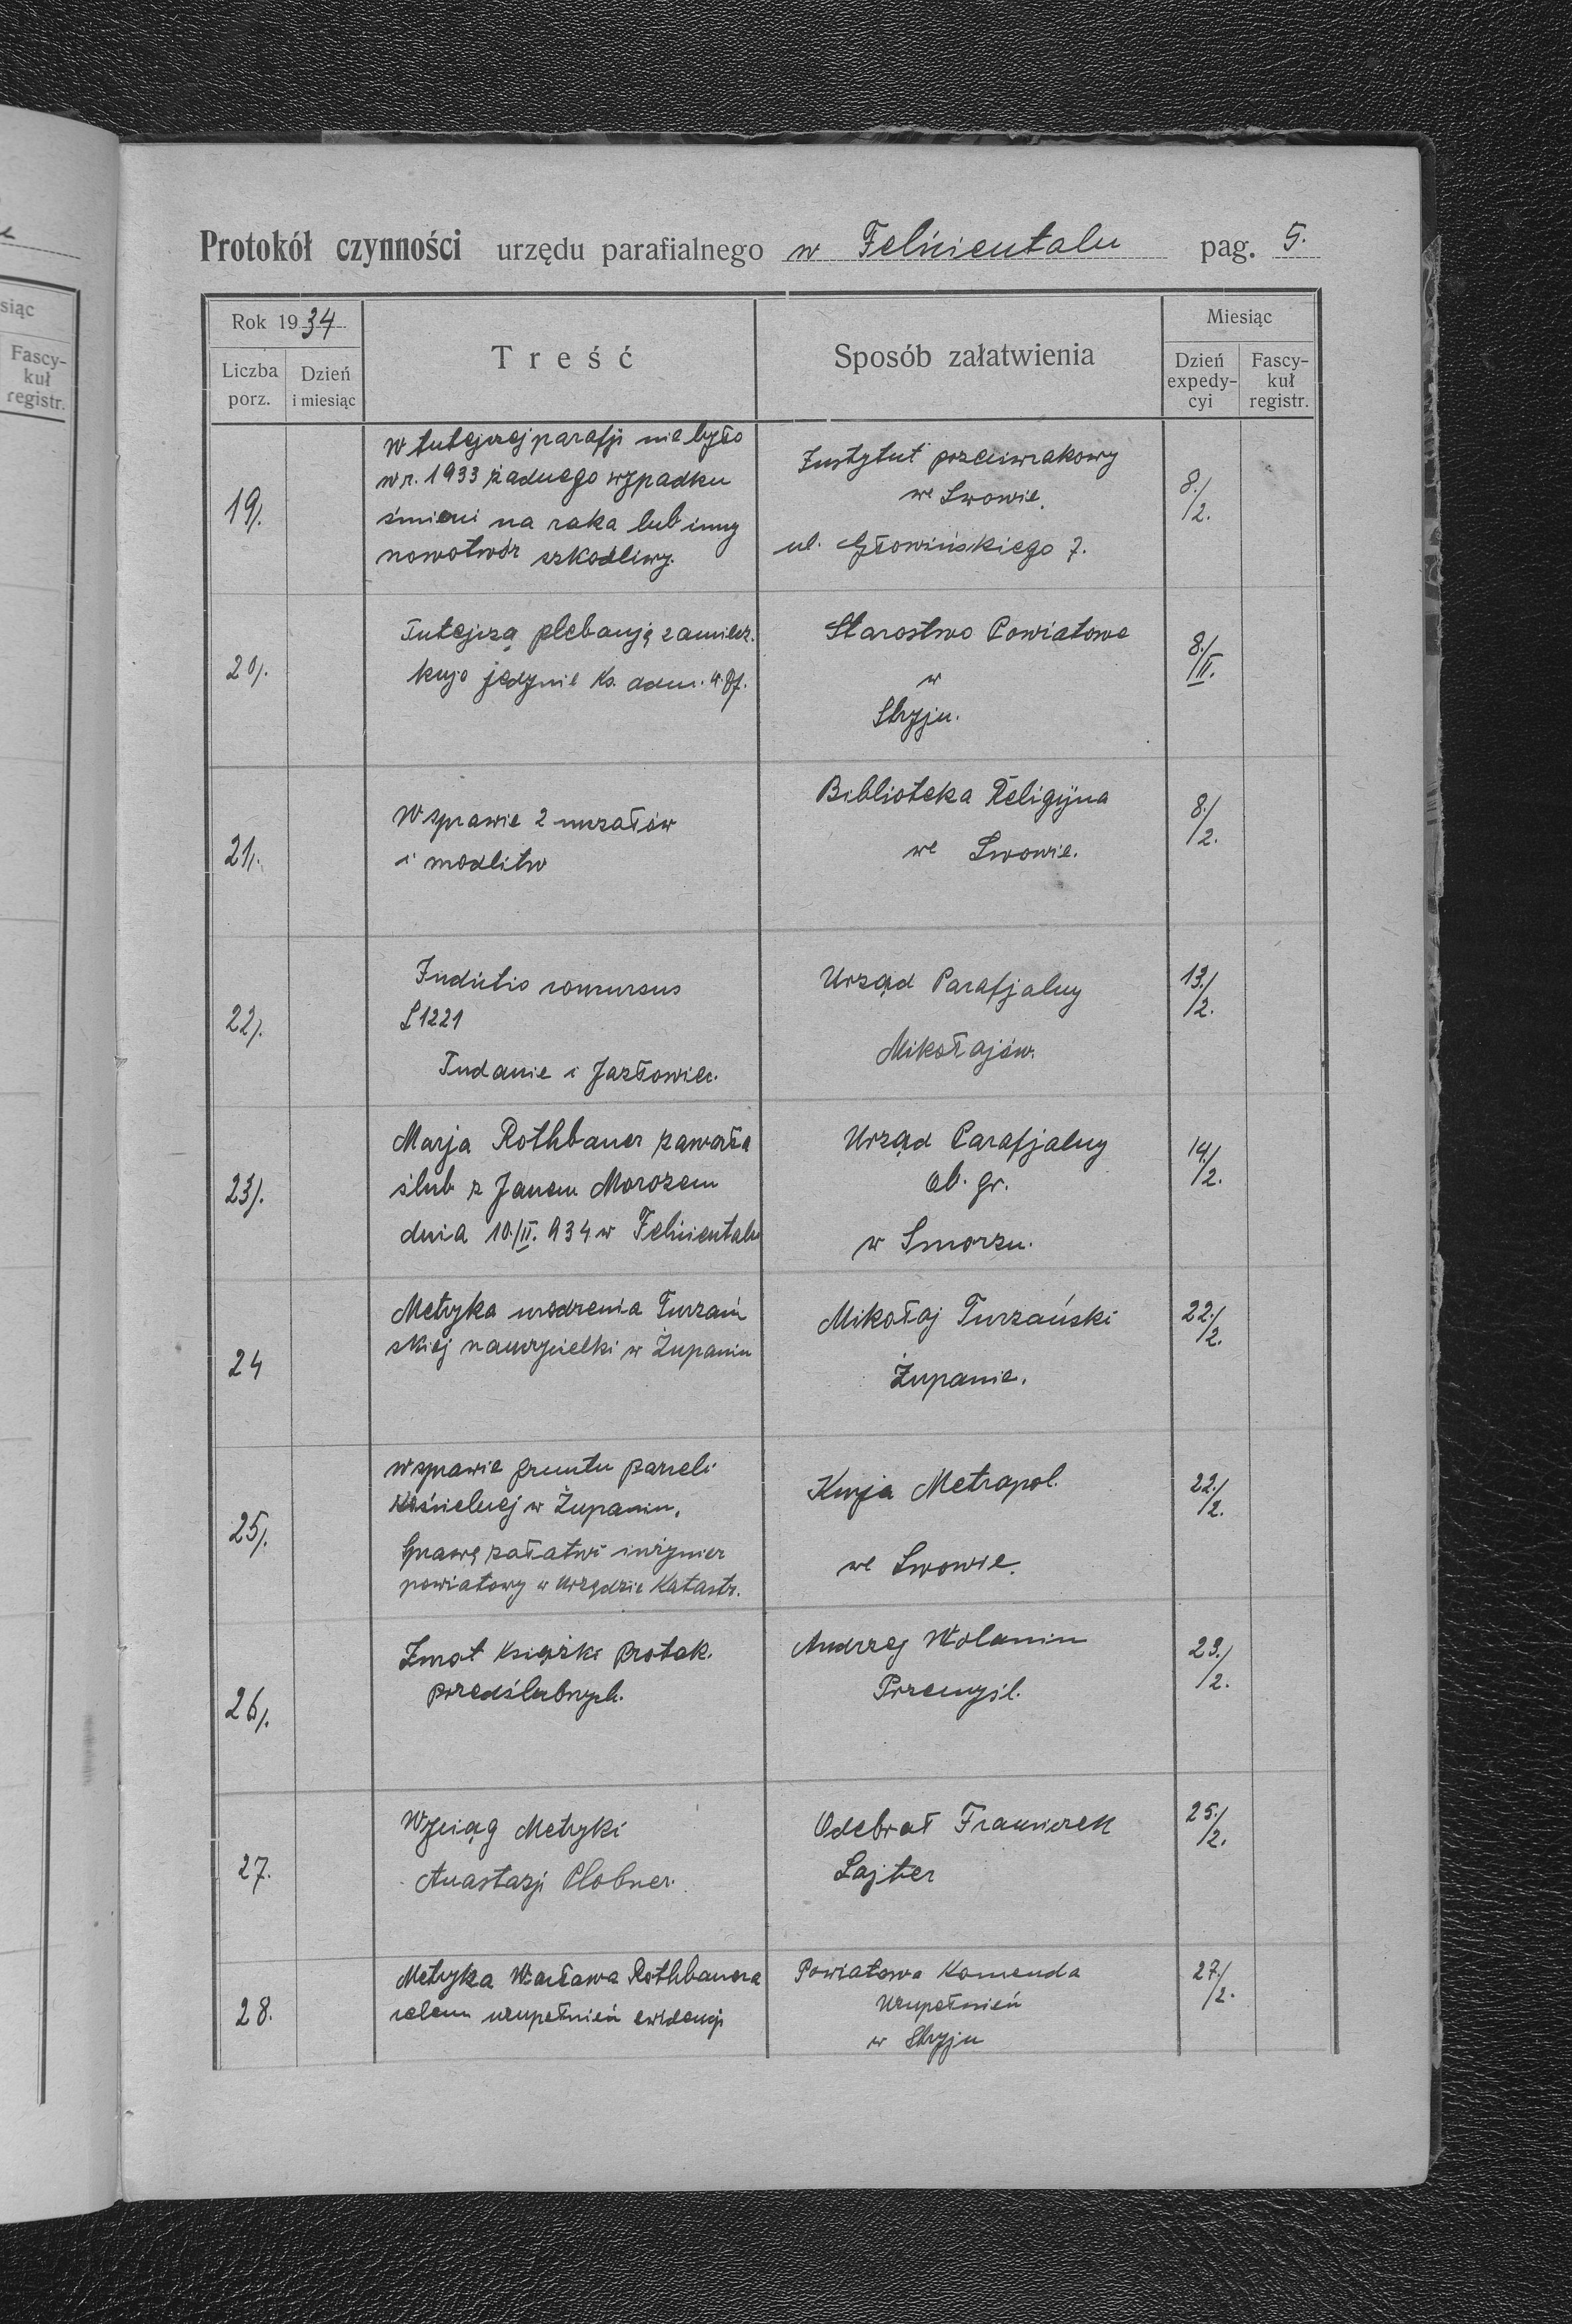 Protokół czynności urzędu parafialnego w Felicientalu pag. 5.
Rok 1934
Liczba porz.
Dzień i miesiąc
Treść
Sposób załatwienia
Miesiąc
Dzień expedycyi
Fascykuł registr.
siąc
Fascy-
kuł
registr.
19/.
W tutejszej parafji nie było
w r. 1933 żadnego wypadku
śmierci na raka lub inny
nowotwór szkodliwy.
Instytut przeciwrakowy
we Lwowie.
ul. Głowińskiego 7.
8./2.
20/.
Tutejszą plebanję zamiesz.
kuje jedynie ks. adm.
Starostwo Powiatowe
w
Stryju.
8./II.
21/.
W sprawie 2 mszałów
i modlitw
Biblioteka Religijna
we Lwowie.
8./2.
22/.
Indictio concursus
L 1221
Tudanie i Jazłowiec.
Urząd Parafjalny
Mikołajów.
13./2.
23/.
Marja Rothbauer zawarła
ślub z Janem Morozem
dnia 10./II. 934 w Felicientalu
Urząd Parafjalny
ob. gr.
w Smorzu.
14./2.
24
Metryka urodzenia Turzań
skiej nauczycielki w Żupaniu
Mikołaj Turzański
Żupanie.
22./2.
25/.
W sprawie gruntu parceli
Kościelnej w Żupaniu.
Sprawę załatwi inżynier
powiatowy w Urzędzie Katastr.
Kurja Metropol.
we Lwowie.
22./2.
26/.
Zwrot Książki Protok.
przedślubnych.
Andrzej Wolanin
Przemyśl.
23./2.
27.
Wyciąg Metryki
Anastazji Plobner.
Odebrał Franciszek
Lajter
25./2.
28.
Metryka Wacława Rothbauera
celem uzupełnień ewidencji
Powiatowa Komenda
Uzupełnień
w Stryju
27./2.